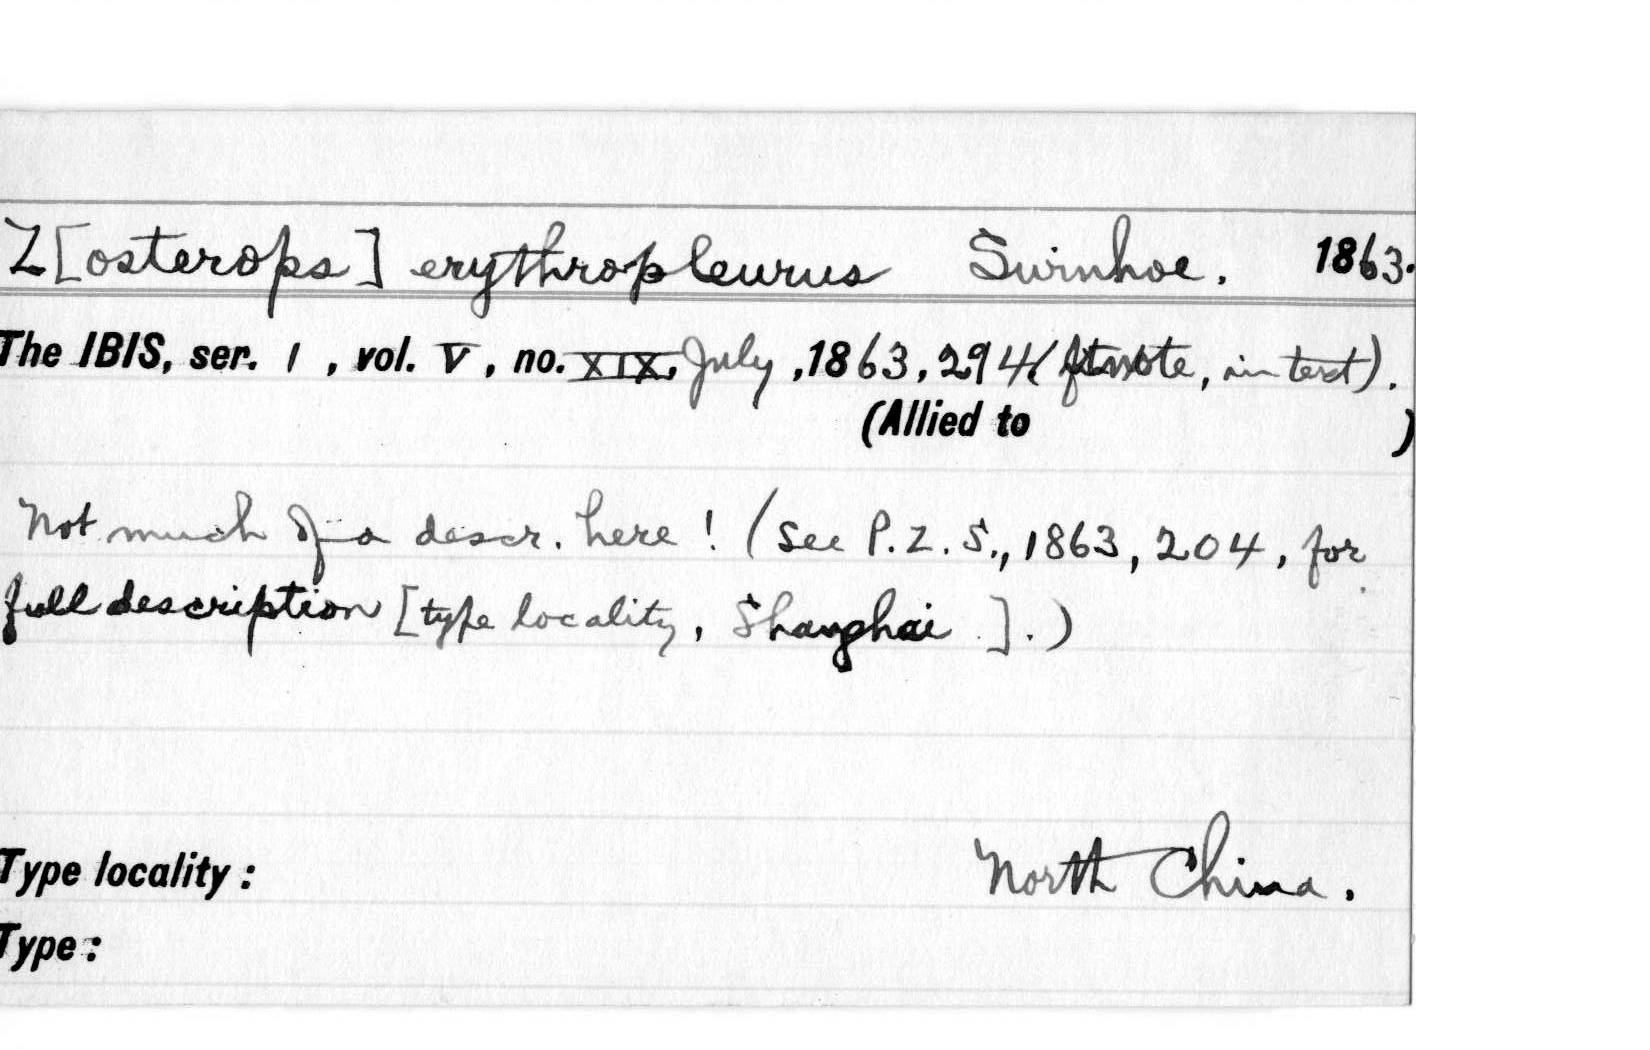 Z[osterops] erythropleurus Swinhoe. 1863.
The IBIS, ser. 1, vol. V, no. XIX, July, 1863, 294 (ftnote, in text).
(Allied to )
Not much of a descr. here! (See P.Z.S., 1863, 204, for
full description [type locality, Shanghai ].)
Type locality: North China.
Type: